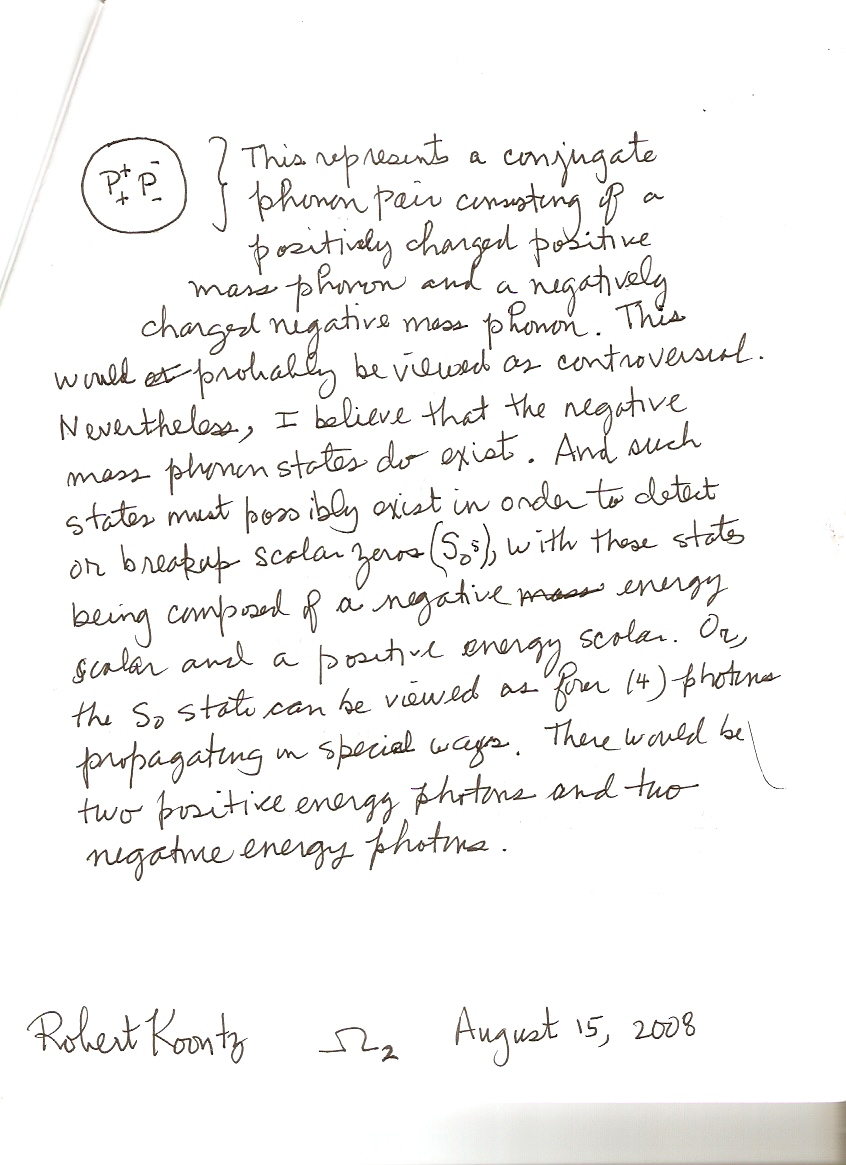 P⁺₊ P⁻₋ } This represents a conjugate
phonon pair consisting of a
positively charged positive
mass phonon and a negatively
charged negative mass phonon. This
would probably be viewed as controversial.
Nevertheless, I believe that the negative
mass phonon states do exist. And such
states must possibly exist in order to detect
or breakup scalar zeros (S₀ˢ), with these states
being composed of a negative mass energy
scalar and a positive energy scalar. Or,
the S₀ state can be viewed as four (4) photons
propagating in special ways. There would be
two positive energy photons and two
negative energy photons.
Robert Koontz Ω₂ August 15, 2008